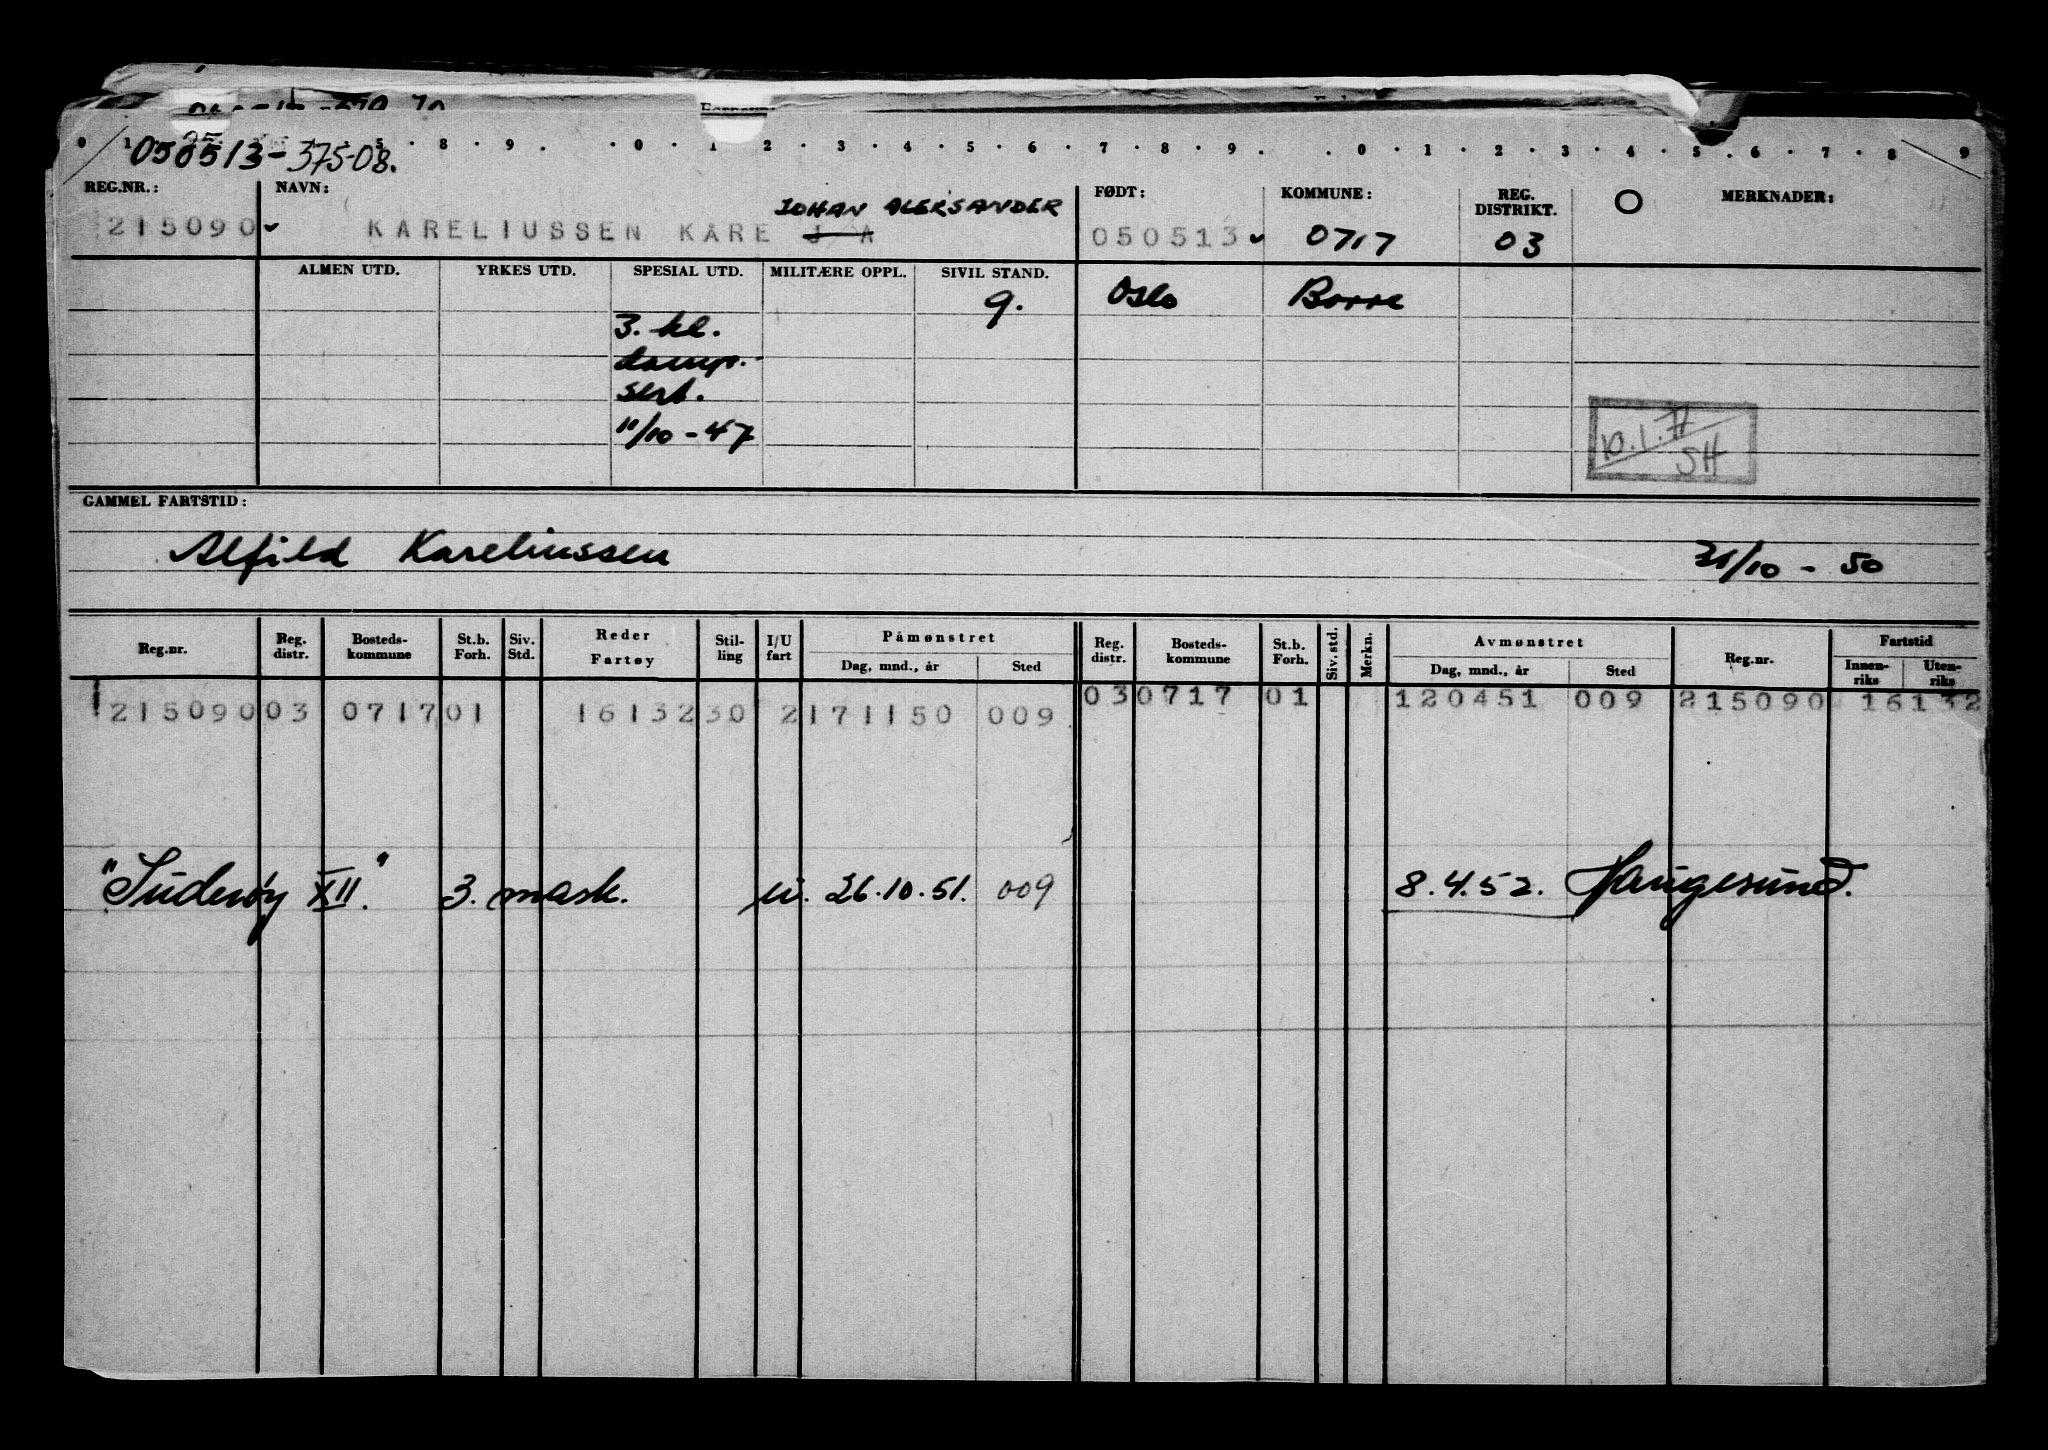 050513-375-08.
REG.NR.: NAVN: FØDT: KOMMUNE: REG. DISTRIKT. MERKNADER:
JOHAN ALEKSANDER
215090 KARELIUSSEN KÅRE J A 050513 0717 03
ALMEN UTD. YRKES UTD. SPESIAL UTD. MILITÆRE OPPL. SIVIL STAND.
g. Oslo Borre
3. kl.
damp.
sert.
11/10 - 47
10.1.77
SH
GAMMEL FARTSTID:
Alfild Kareliussen 31/10 - 50
Reg.nr. Reg. distr. Bosteds-kommune St.b. Forh. Siv. Std. Reder Fartøy Stil-ling I/U fart Påmønstret Dag, mnd., år Sted Reg. distr. Bosteds-kommune St.b. Forh. Siv. std. Merkn. Avmønstret Dag, mnd., år Sted Reg.nr. Fartstid Innen-riks Uten-riks
215090 03 0717 01 16132 30 2 171150 009 03 0717 01 120451 009 215090 16132
"Suderøy XII." 3. mask. u. 26.10.51. 009 8.4.52. Haugesund.